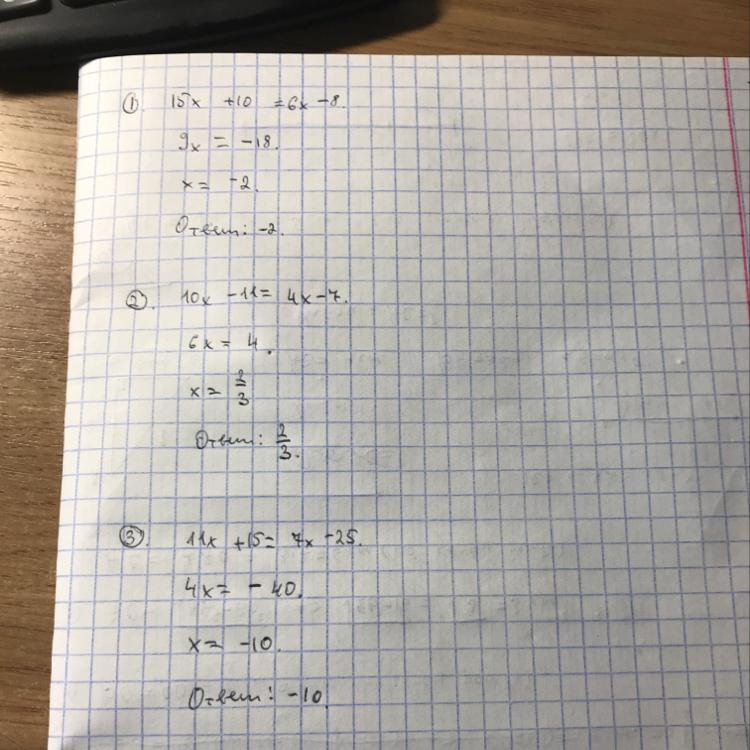 ① 15x +10 = 6x -8.
9x = -18.
x = -2.
Ответ: -2.
②. 10x -11 = 4x -7.
6x = 4.
x = 2/3
Ответ: 2/3.
③. 11x +15 = 7x -25.
4x = - 40.
x = -10.
Ответ: -10